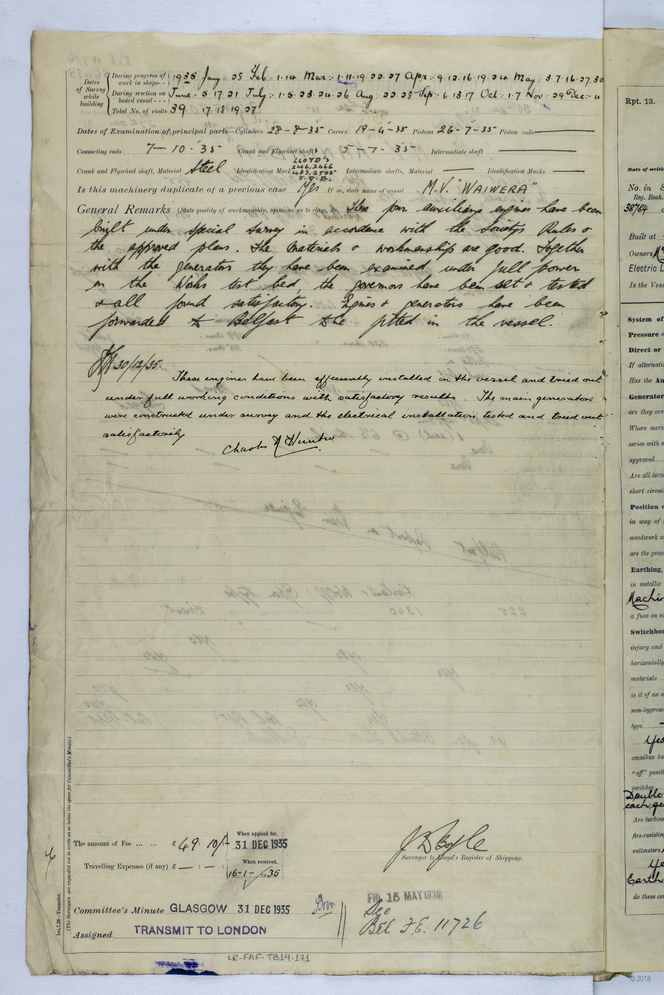 Dates of Survey while building
During progress of work in shops - - 1935 Jany: 25 Feb: 1.14 Mar: 1.11.19.22.27 Apr: 9.12.16.19.24 May: 3.7.16.27.30
During erection on board vessel - - - June: 5.17.21 July: 1.5.23.24.26 Aug: 22.28 Sep: 6.13.17 Oct: 1.7 Nov: 29 Dec: 11
Total No. of visits 39 17.18.19.27
Dates of Examination of principal parts—Cylinders 28-8-35 Covers 19-4-35 Pistons 26-7-35 Piston rods
Connecting rods 7-10-35 Crank and Flywheel shafts 5-7-35 Intermediate shaft
Crank and Flywheel shaft, Material Steel Identification Mark LLOYD'S Intermediate shafts, Material Identification Marks
Is this machinery duplicate of a previous case Yes If so, state name of vessel M.V. "WAIWERA"
General Remarks (State quality of workmanship, opinions as to class, &c. These four auxiliary engines have been
built under Special Survey in accordance with the Society's Rules &
the approved plans. The materials & workmanship are good. Together
with the generators they have been examined under full power
on the Works test bed, the governors have been set & tested
& all found satisfactory. Engines & generators have been
forwarded to Belfast to be fitted in the vessel.
30/12/35.
These engines have been efficiently installed in the vessel and tried out
under full working conditions with satisfactory results. The main generators
were constructed under survey and the electrical installation tested and tried out
satisfactorily
Charles Hunter
The amount of Fee ... ... £ 49: 10/- When applied for, 31 DEC 1935
Travelling Expenses (if any) £ — : — : When received, 16-1-
Surveyor to Lloyd's Register of Shipping.
Committee's Minute GLASGOW 31 DEC 1935
FRI. 15 MAY 1936
Assigned TRANSMIT TO LONDON
See
Bel F.E. 11726
LR-FAF-TB14-171
(The Surveyors are requested not to write on or below the space for Committee's Minute.)
Rpt. 13.
Date of writi
No. in
Reg. Book.
38704
Built at
Owners
Electric L
Is the Vesse
System of
Pressure
Direct or
If alternati
Has the Au
Generator
are they ov
Where more
series with
approved
Are all term
short circui
Position o
in way of
woodwork
are the gene
Earthing,
in metallic
Machin
a fuse on
Switchboa
injury and
horizontally
materials
is it of an
non-hygros
type
Yes
omnibus ba
"off" positi
switches
Double
each ge
Are turbin
fire-resisting
voltmeters,
Ye
Earth
do these co
© 2018